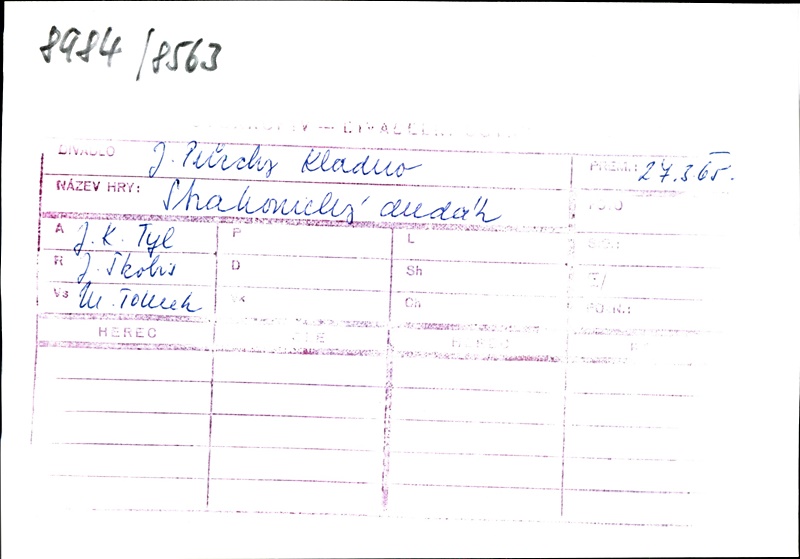 8984/8563
DIVADLO J. Průchy Kladno PREM.: 27.3.65.
NÁZEV HRY: Strakonický dudák
A J. K. Tyl P L
R J. Škobis D Sh
Vs M. Tomek Ch
HEREC HEREC